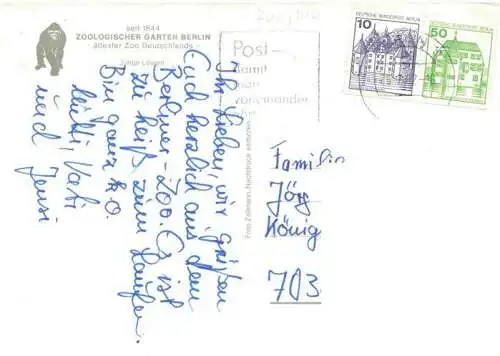 seit 1844
ZOOLOGISCHER GARTEN BERLIN
- ältester Zoo Deutschlands -
Junge Löwen
Ihr Lieben, wir grüßen
Euch herzlich aus dem
Berliner-Zoo. Es ist
zu heiß zum Laufen.
Bin ganz k.o.
Mutti, Vati
und Jensi
Foto Zellmann, Nachdruck verboten
Post-
damit
man
voneinander
DEUTSCHE BUNDESPOST BERLIN
10
DEUTSCHE BUNDESPOST BERLIN
50
Familie
Jörg
König
703